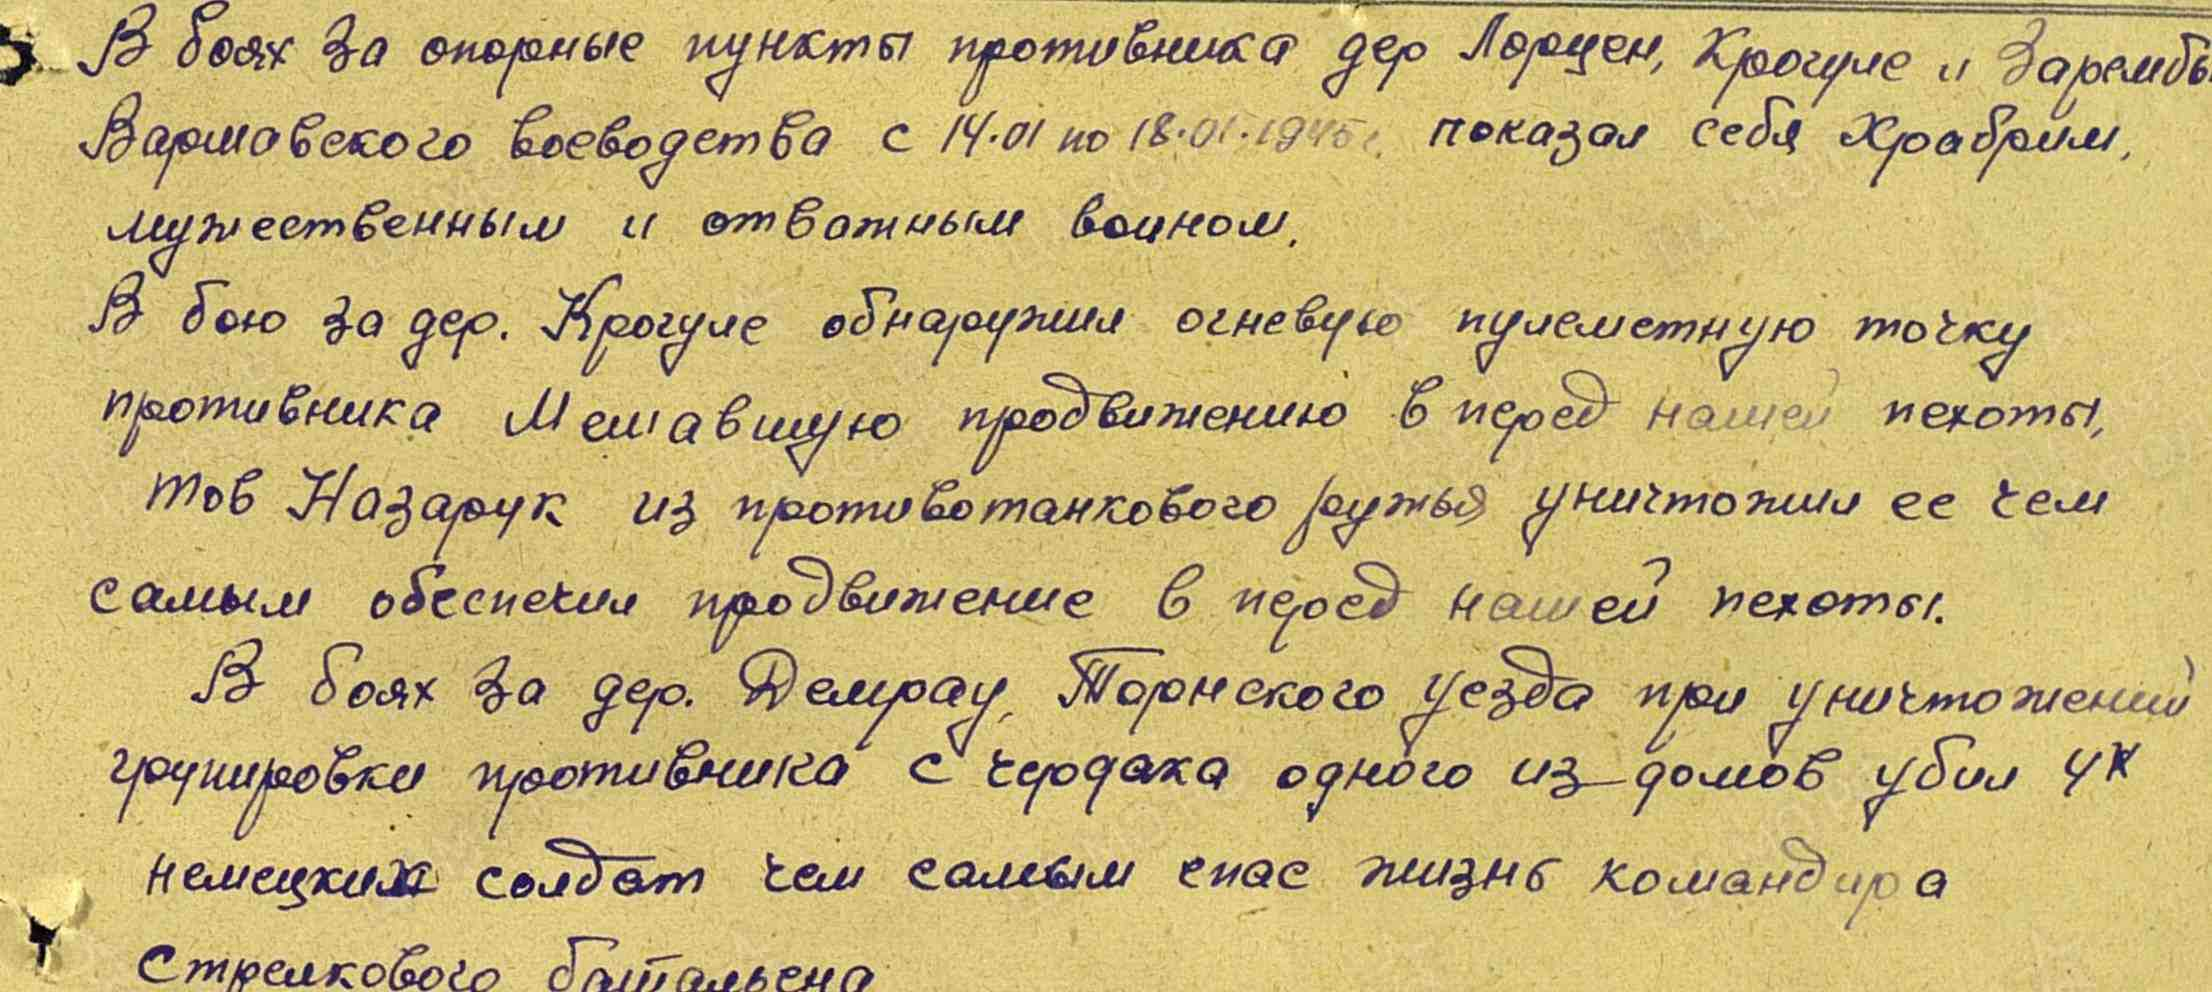 В боях за опорные пункты противника дер Лорцен, Крогуле и Зарембы
Варшавского воеводства с 14.01 по 18.01.1945г. показал себя храбрим,
мужественным и отважным воином.
В бою за дер. Крогуле обнаружил огневую пулеметную точку
противника Мешавшую продвижению в перед нашей пехоты,
тов Назарук из противотанкового ружья уничтожил ее чем
самым обеспечил продвижение в перед нашей пехоты.
В боях за дер. Демрау, Торнского уезда при уничтожений
групировки противника с чердака одного из домов убил 4х
немецких солдат чем самым спас жизнь командира
Стрелкового батальена